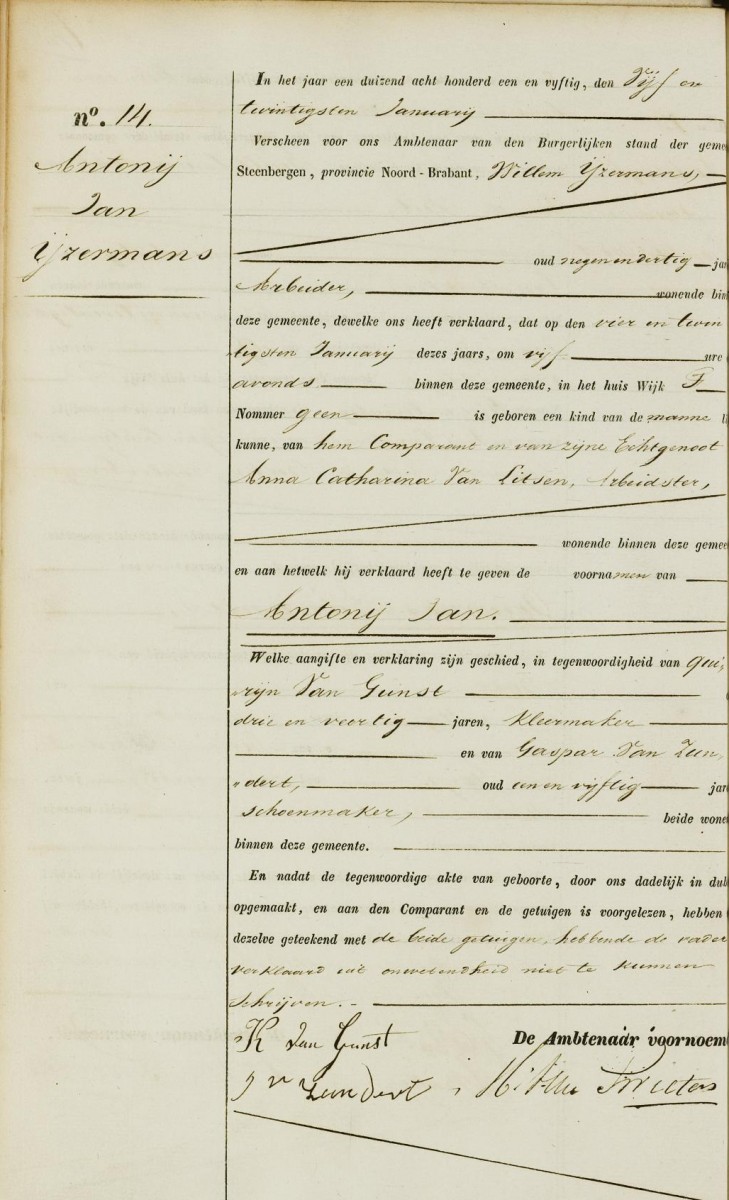 nº. 14.
Antonij
Jan
IJzermans
In het jaar een duizend acht honderd een en vyftig, den Vijf en
twintigsten Januarij
Verscheen voor ons Ambtenaar van den Burgerlijken stand der geme
Steenbergen, provincie Noord-Brabant, Willem IJzermans,
oud negenendertig jar
Arbeider, wonende bin
deze gemeente, dewelke ons heeft verklaard, dat op den vier en twen
tigsten Januarij dezes jaars, om vijf ure
avonds binnen deze gemeente, in het huis Wijk F
Nommer geen is geboren een kind van de manne l
kunne, van hem Comparant en van zijne Echtgenoot
Anna Catharina Van Litsen, Arbeidster,
wonende binnen deze gemee
en aan hetwelk hij verklaard heeft te geven de voornamen van
Antonij Jan.
Welke aangifte en verklaring zijn geschied, in tegenwoordigheid van Qui-
rijn Van Gunst
drie en veertig jaren, kleermaker
en van Gaspar Van Zun-
dert, oud een en vijftig jar
schoenmaker, beide wone
binnen deze gemeente.
En nadat de tegenwoordige akte van geboorte, door ons dadelijk in dub
opgemaakt, en aan den Comparant en de getuigen is voorgelezen, hebben
dezelve geteekend met de beide getuigen, hebbende de vader
verklaard uit onwetendheid niet te kunnen
schrijven.-
K Van Gunst De Ambtenaar voornoem
v Zundert